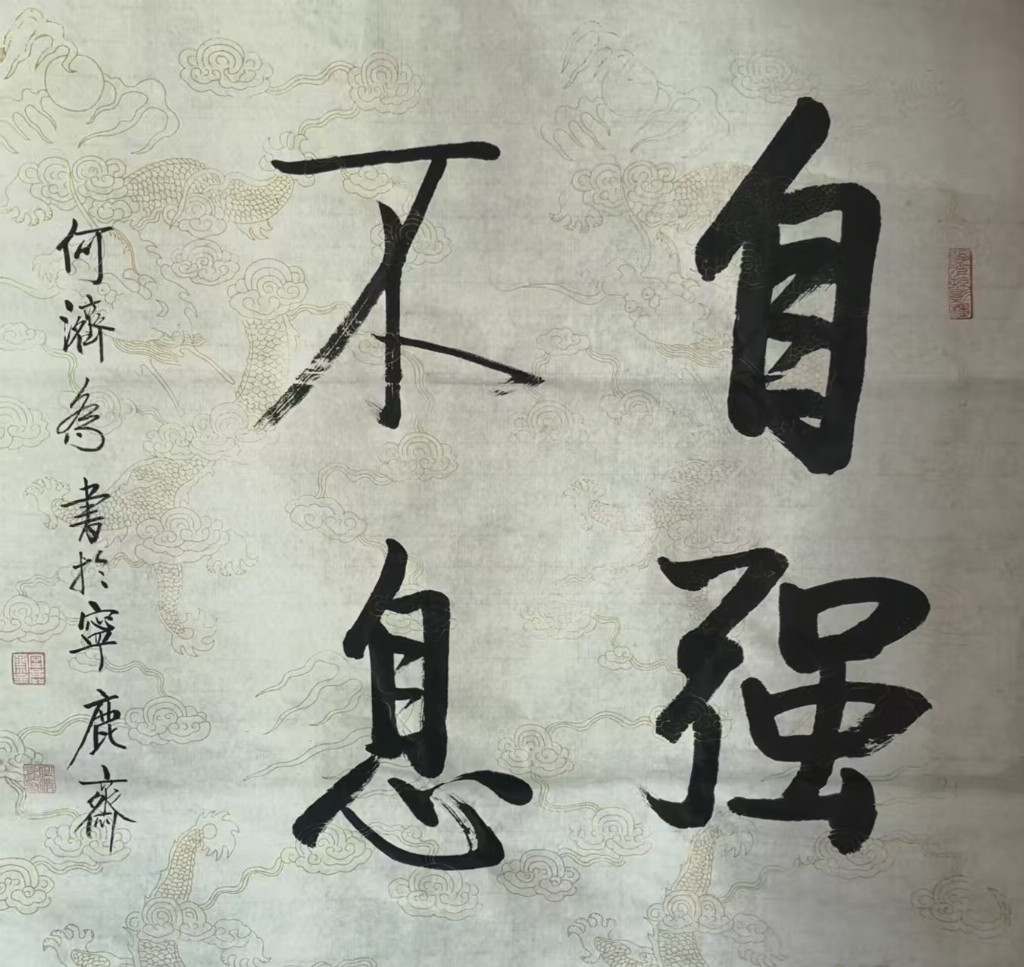 自强
不息
何濟為書於寧鹿齋